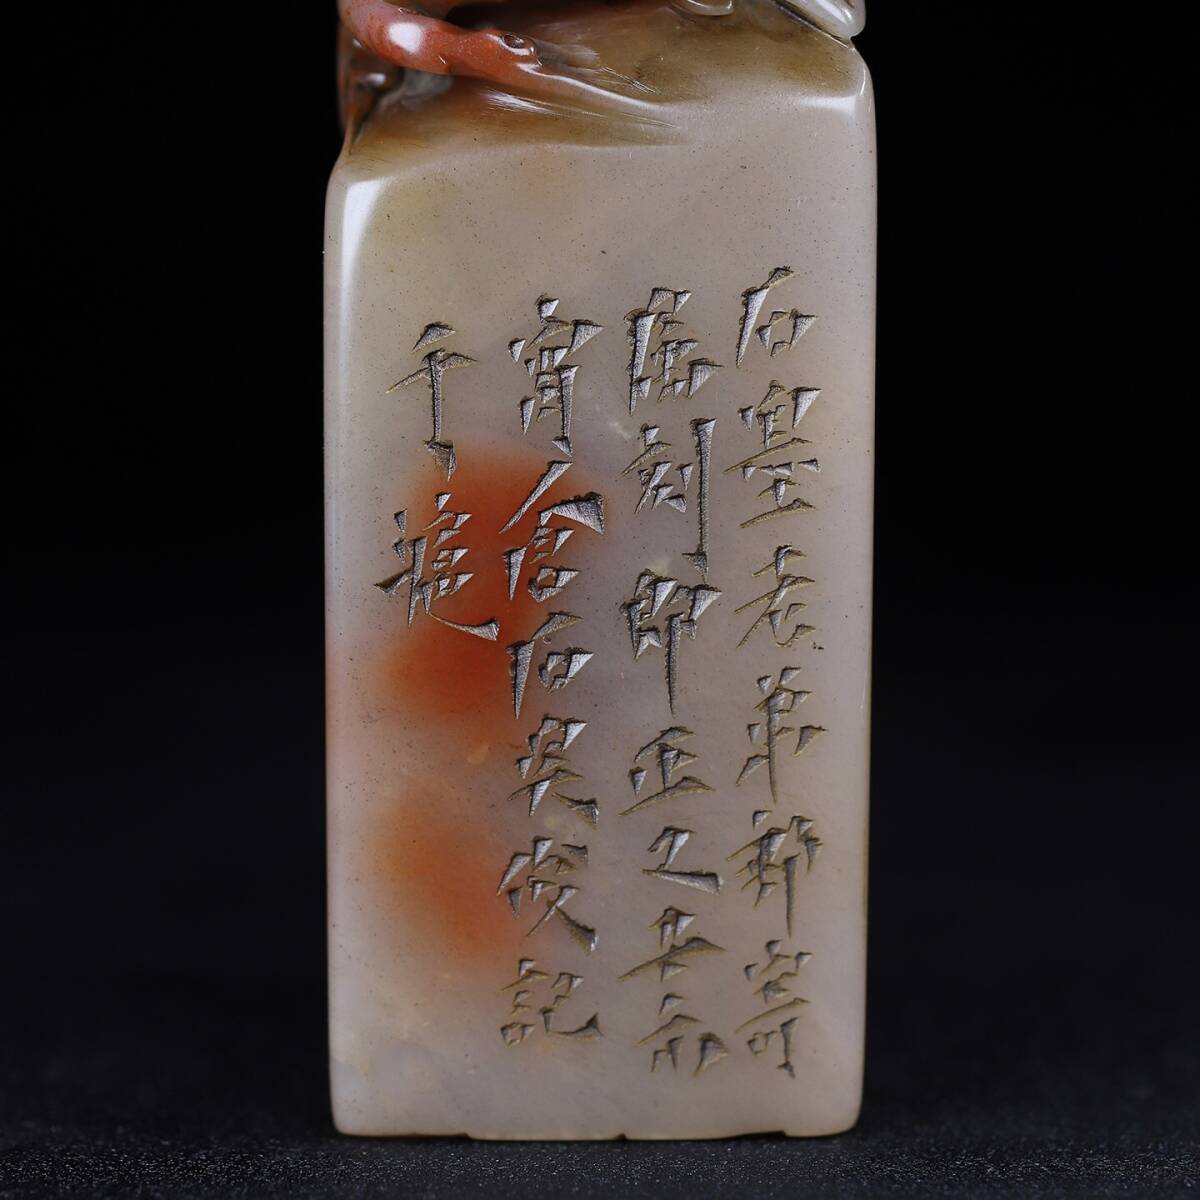 石墨老弟郵寄
屬刻即正之辛亥
宵倉石吳俊記
于滬